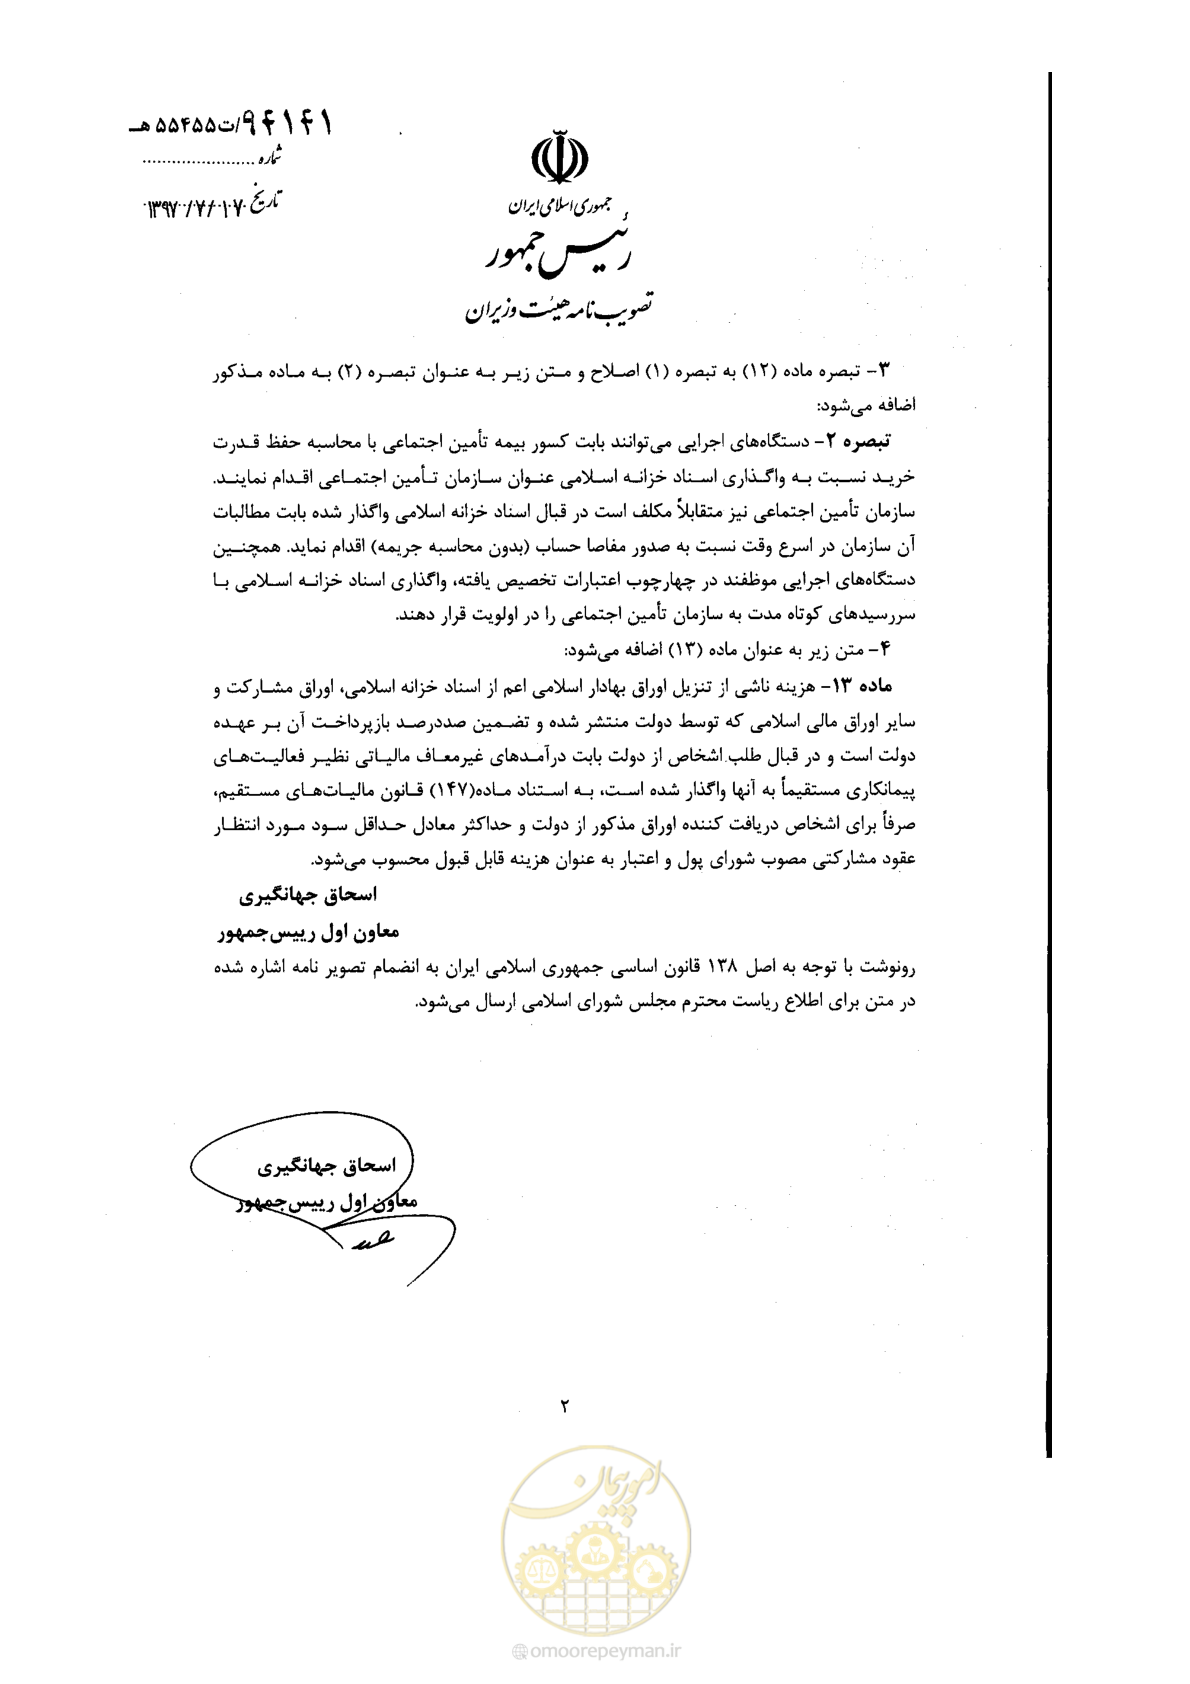 ۹۴۱۴۱/ت۵۵۴۵۵هـ
شماره
تاریخ ۱۳۹۷/۷/۰۷
جمهوری اسلامی ایران
رئیس جمهور
تصویب نامه هیئت وزیران
۳- تبصره ماده (۱۲) به تبصره (۱) اصلاح و متن زیر به عنوان تبصره (۲) به ماده مذکور
اضافه می‌شود:
تبصره ۲- دستگاه‌های اجرایی می‌توانند بابت کسور بیمه تأمین اجتماعی با محاسبه حفظ قدرت
خرید نسبت به واگذاری اسناد خزانه اسلامی عنوان سازمان تأمین اجتماعی اقدام نمایند.
سازمان تأمین اجتماعی نیز متقابلاً مکلف است در قبال اسناد خزانه اسلامی واگذار شده بابت مطالبات
آن سازمان در اسرع وقت نسبت به صدور مفاصا حساب (بدون محاسبه جریمه) اقدام نماید. همچنین
دستگاه‌های اجرایی موظفند در چهارچوب اعتبارات تخصیص یافته، واگذاری اسناد خزانه اسلامی با
سررسیدهای کوتاه مدت به سازمان تأمین اجتماعی را در اولویت قرار دهند.
۴- متن زیر به عنوان ماده (۱۳) اضافه می‌شود:
ماده ۱۳- هزینه ناشی از تنزیل اوراق بهادار اسلامی اعم از اسناد خزانه اسلامی، اوراق مشارکت و
سایر اوراق مالی اسلامی که توسط دولت منتشر شده و تضمین صددرصد بازپرداخت آن بر عهده
دولت است و در قبال طلب اشخاص از دولت بابت درآمدهای غیرمعاف مالیاتی نظیر فعالیت‌های
پیمانکاری مستقیماً به آنها واگذار شده است، به استناد ماده(۱۴۷) قانون مالیات‌های مستقیم،
صرفاً برای اشخاص دریافت کننده اوراق مذکور از دولت و حداکثر معادل حداقل سود مورد انتظار
عقود مشارکتی مصوب شورای پول و اعتبار به عنوان هزینه قابل قبول محسوب می‌شود.
اسحاق جهانگیری
معاون اول رییس‌جمهور
رونوشت با توجه به اصل ۱۳۸ قانون اساسی جمهوری اسلامی ایران به انضمام تصویر نامه اشاره شده
در متن برای اطلاع ریاست محترم مجلس شورای اسلامی ارسال می‌شود.
اسحاق جهانگیری
معاون اول رییس‌جمهور
۲
امور پیمان
omoorepeyman.ir